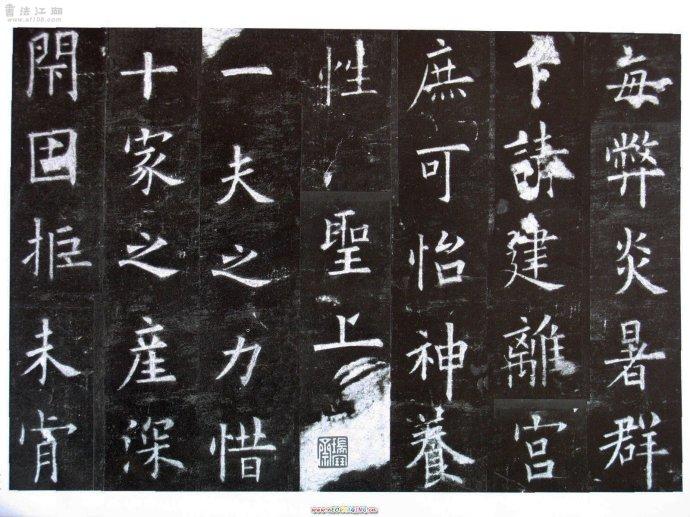 書法江湖
www.sf108.com
每弊炎暑群
下請建離宮
庶可怡神養
性聖上
一夫之力惜
十家之産深
閇固拒未肯